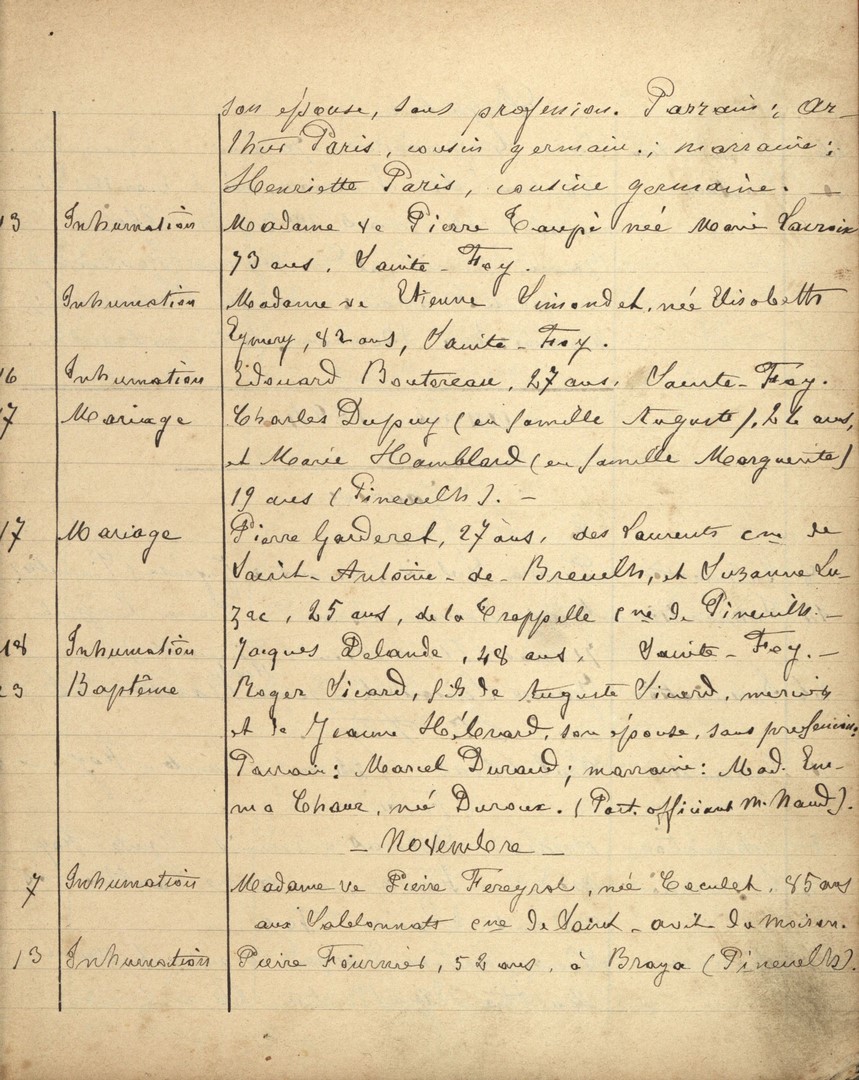 son épouse, sans profession. Parrain: Ar-
thur Paris, cousin germain.; marraine:
Henriette Paris, cousine germaine. —
13 Inhumation Madame ve Pierre née Marie Lacroix
73 ans, Sainte-Foy.
Inhumation Madame ve Etienne Simondet, née Elisabeth
Eymery, 82 ans, Sainte-Foy.
16 Inhumation Edouard Boutereau, 27 ans, Sainte-Foy.
17 Mariage Charles Dupuy (en famille Auguste), 22 ans,
et Marie Hamblard (en famille Marguerite)
19 ans (Pineuilh). —
17 Mariage Pierre Garderet, 27 ans, des Laurents cne de
Saint-Antoine-de-Breuilh, et Suzanne Lu-
zac, 25 ans, de la Trappelle cne de Pineuilh. —
18 Inhumation Jacques Delande, 48 ans, Sainte-Foy. —
23 Baptême Roger Sicard, fils de Auguste Sicard,
et de Jeanne son épouse, sans profession.
Parrain: Marcel Durand; marraine: Mad. Em-
ma née Duroux. (Past. officiant M. Naud).
— Novembre —
7 Inhumation Madame ve Pierre Fereyrol, née 85 ans
aux cne de Saint-avit du moiron.
13 Inhumation Pierre Fournier, 52 ans, à Braya (Pineuilh).